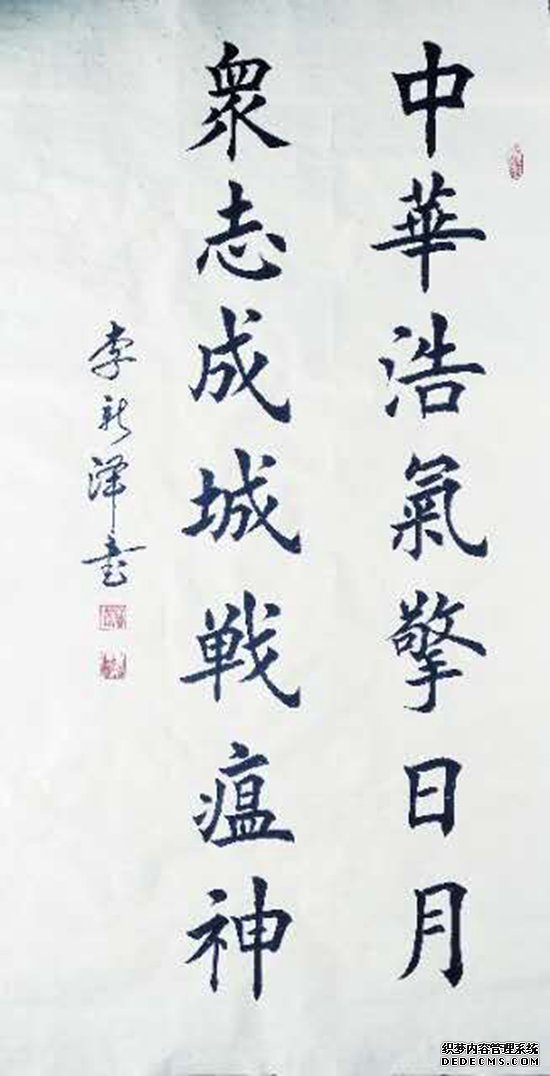 中華浩氣擎日月
衆志成城戦瘟神
李新泽书
织梦内容管理系统
DEDECMS.COM